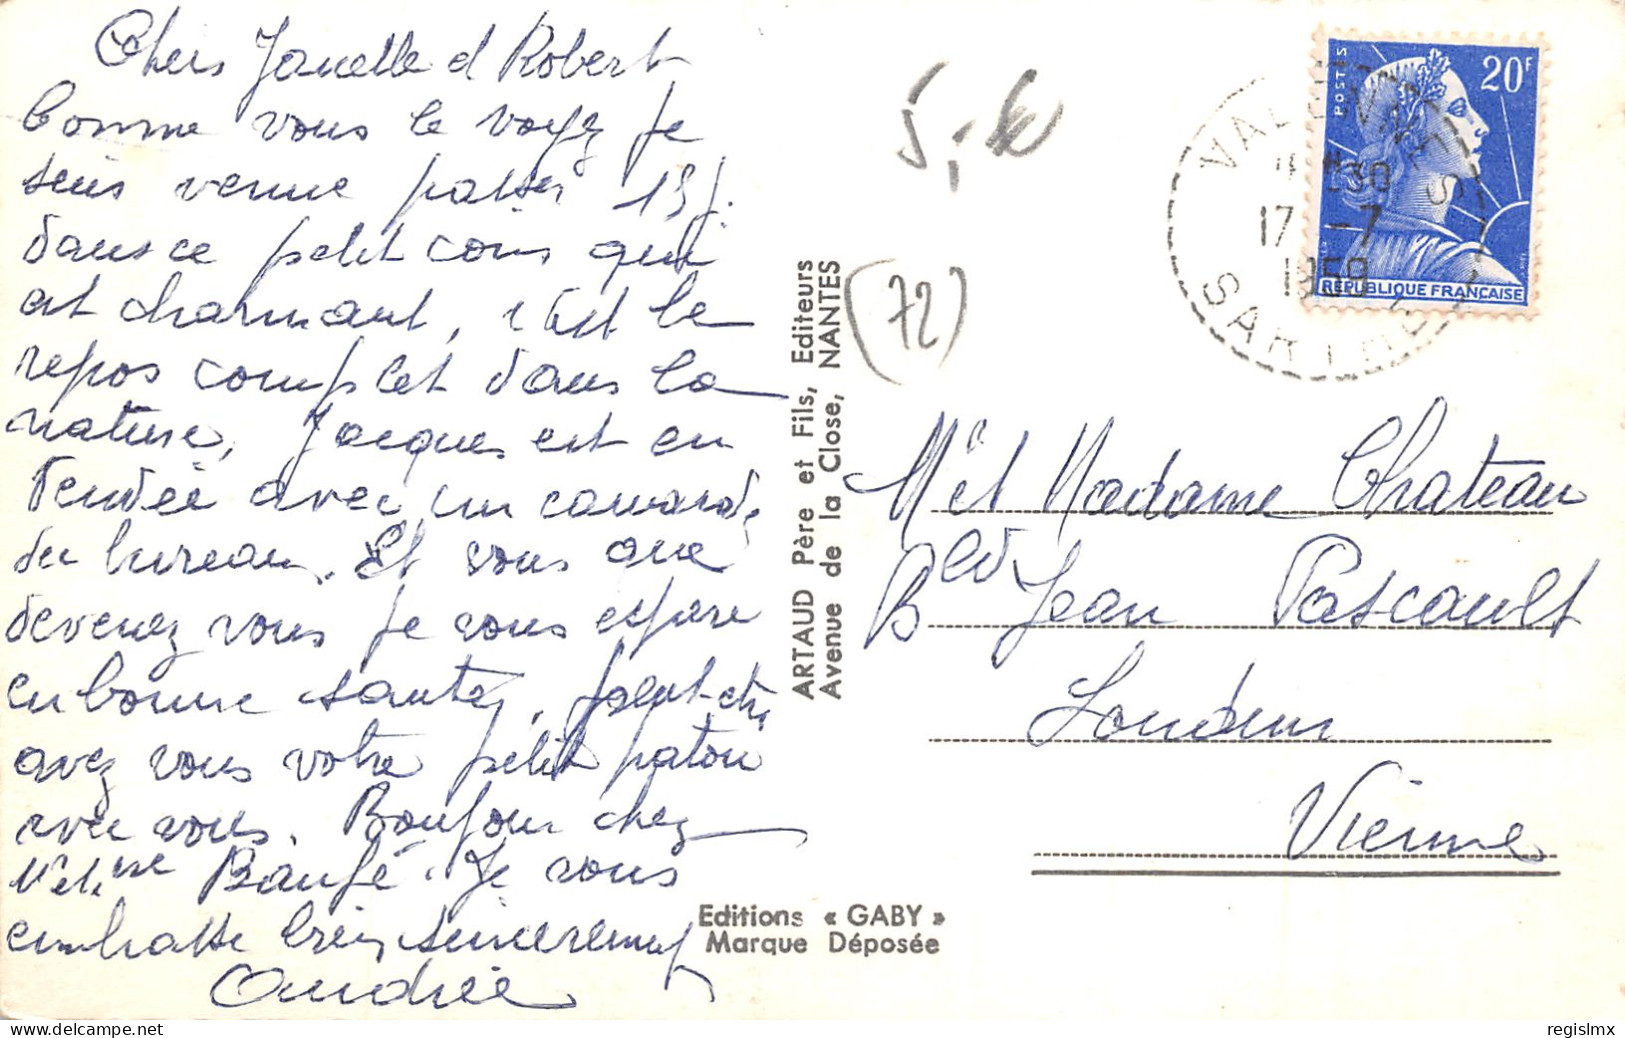 Chers Janette et Robert
Comme vous le voyez je
suis venue passer 15 j.
dans ce petit coin qui
est charmant, c'est le
repos complet dans la
nature, Jacques est en
Vendée avec un camarade
du bureau. Et vous que
devenez vous je vous espère
en bonne santé, peut-être
avez vous votre petit
avec vous. Bonjour chez
Mr et Mme Baufé. Je vous
embrasse bien sincèrement
Andrée
5,-
(72)
ARTAUD Père et Fils, Editeurs
Avenue de la Close, NANTES
Editions « GABY »
Marque Déposée
POSTES
20F
REPUBLIQUE FRANÇAISE
30
17 -7
1959
SARTHE
Mr et Madame Chateau
Bld Jean Pascault
Loudun
Vienne
© delcampe.net
regislmx